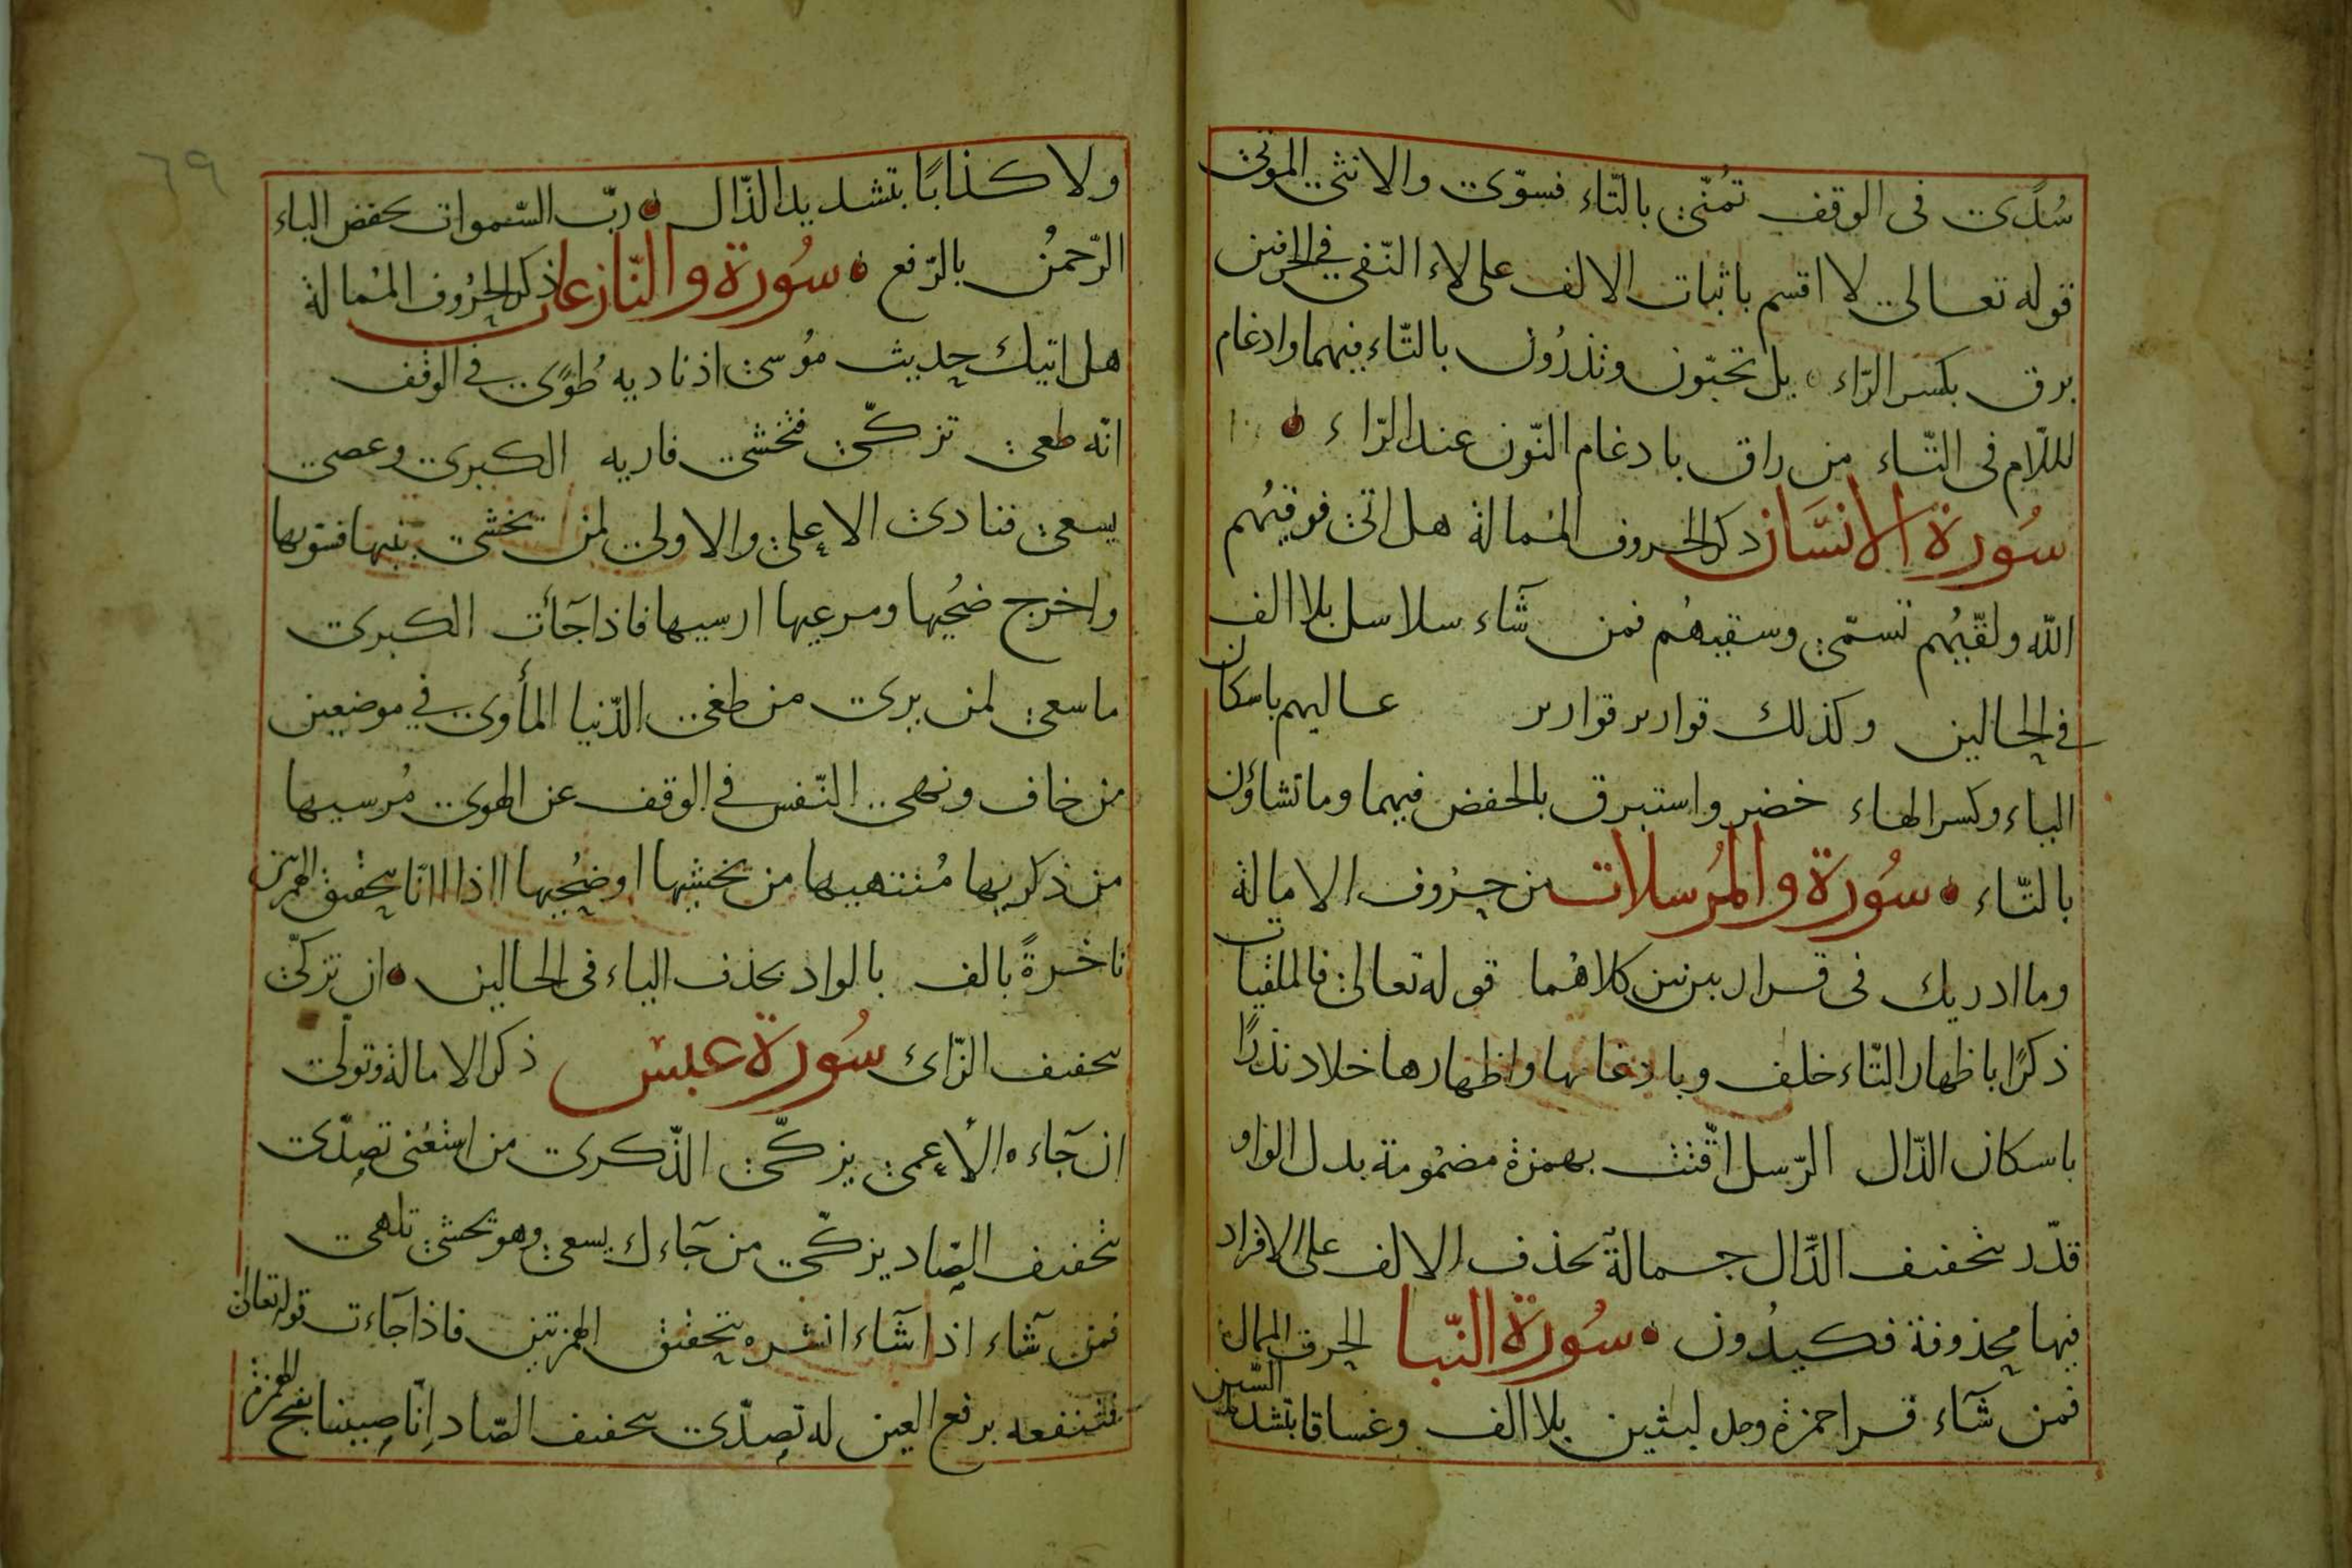 سُدًى فى الوقف تُمنّى بالتّاء فسوّى والانثى الموتى
قوله تعالى لا اقسم باثبات الالف على لاء النّفى فى الحرفين
برق بكسر الرّاء بل تحبّون وتذرُون بالتّاء فيهما وادغام
اللّام فى التّاء من راق بادغام النّون عند الرّاء
سُورة الانسَان ذكر الحروف المُمالة هل اتى فوقيُهم
الله ولقّيُهم تسمّى وسقيهُم فمن شآء سلاسل بلا الف
فى الحالين وكذلك قوارير قوارير عاليهم باسكان
الياء وكسر الهاء خضر واستبرق بالخفض فيهما وما تشاؤن
بالتّاء سُورة والمُرسلات من حروف الامالة
وما ادريك فى قرار كلاهُما قوله تعالى فالملقيات
ذكرًا باظهار التّاء خلف وبادغامها واظهارها خلاد نذرًا
باسكان الذّال الرّسل اقّتت بهمزة مضمُومة بدل الواو
قدّر بتخفيف الدّال جمالةٌ بحذف الالف على الافراد
فيها محذوفة فكيدُون سُورة النّبا الحرف الممال
فمن شآء قرا حمزة وحده لبثين بلا الف وغساقا بتشديد السّين
ولا كذابًا بتشديد الذّال ربّ السّموات بخفض الباء
الرّحمنُ بالرّفع سُورة والنّازعات ذكر الحرُوف المُمالة
هل اتيك حديث مُوسى اذ ناديه طُوًى فى الوقف
انّه طغى تزكّى فتخشى فاريه الكبرى وعصى
يسعى فنادى الاعلى والاولى لمن يخشى بنيها فسوّيها
واخرج ضحُيها ومرعيها ارسيها فاذا جآءت الكبرى
ما سعى لمن يرى من طغى الدّنيا المأوى فى موضعين
من خاف ونهى النّفس فى الوقف عن الهوى مُرسيها
من ذكريها مُنتهيها من يخشيها او ضحُيها ااذا اانّا بتحقيق الهمزتين
ناخرةً بالف بالواد بحذف الياء فى الحالين ان تزكّى
بتخفيف الزّاى سُورة عبس ذكر الامالة وتولّى
ان جآءه الأعمى يزكّى الذّكرى من استغنى تصدّى
بتخفيف الصّاد يزكّى من جآءك يسعى وهو يخشى تلهى
فمن شآء اذا شآء انشره بتحقيق الهمزتين فاذا جآءت قوله تعالى
فتنفعه برفع العين له تصدّى بتخفيف الصّاد انّا صببنا بفتح الهمزة